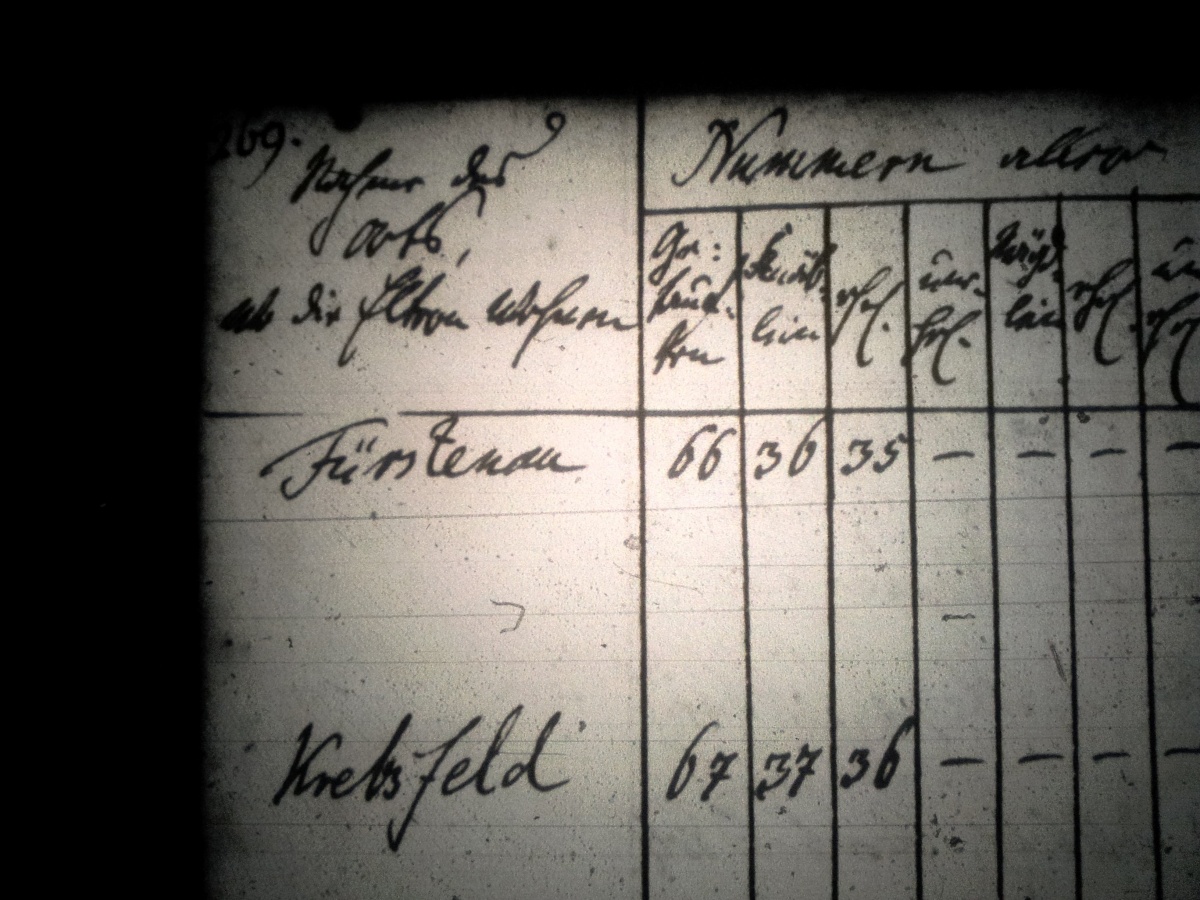 269.
Nahme des
Orts,
wo die Eltern wohnen
Nummern aller
Ge: Knäb- ehel. une- Mägd- ehel. un
taufl- lein hel. lein ehel
ten
Fürstenau 66 36 35 – – – –
Krebsfeld 67 37 36 – – – –